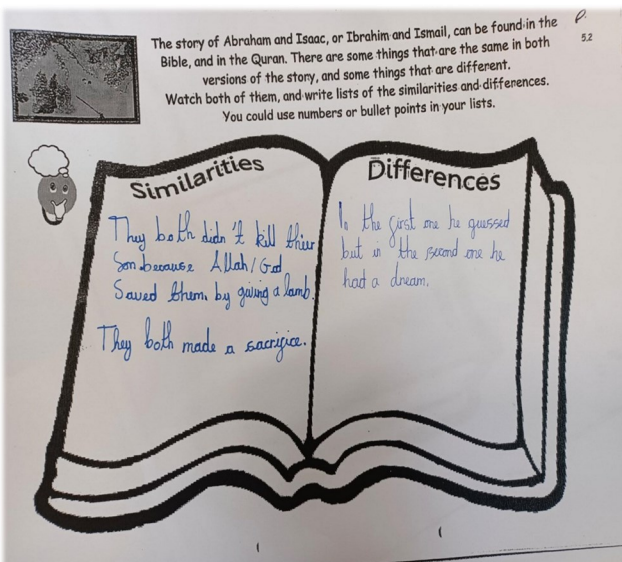 The story of Abraham and Isaac, or Ibrahim and Ismail, can be found in the
Bible, and in the Quran. There are some things that are the same in both
versions of the story, and some things that are different.
Watch both of them, and write lists of the similarities and differences.
You could use numbers or bullet points in your lists.
P.
5.2
Similarities
They both didn't kill thier
Son because Allah/God
Saved them, by giving a lamb.
They both made a sacrifice.
Differences
In the first one he guessed
but in the second one he
had a dream.